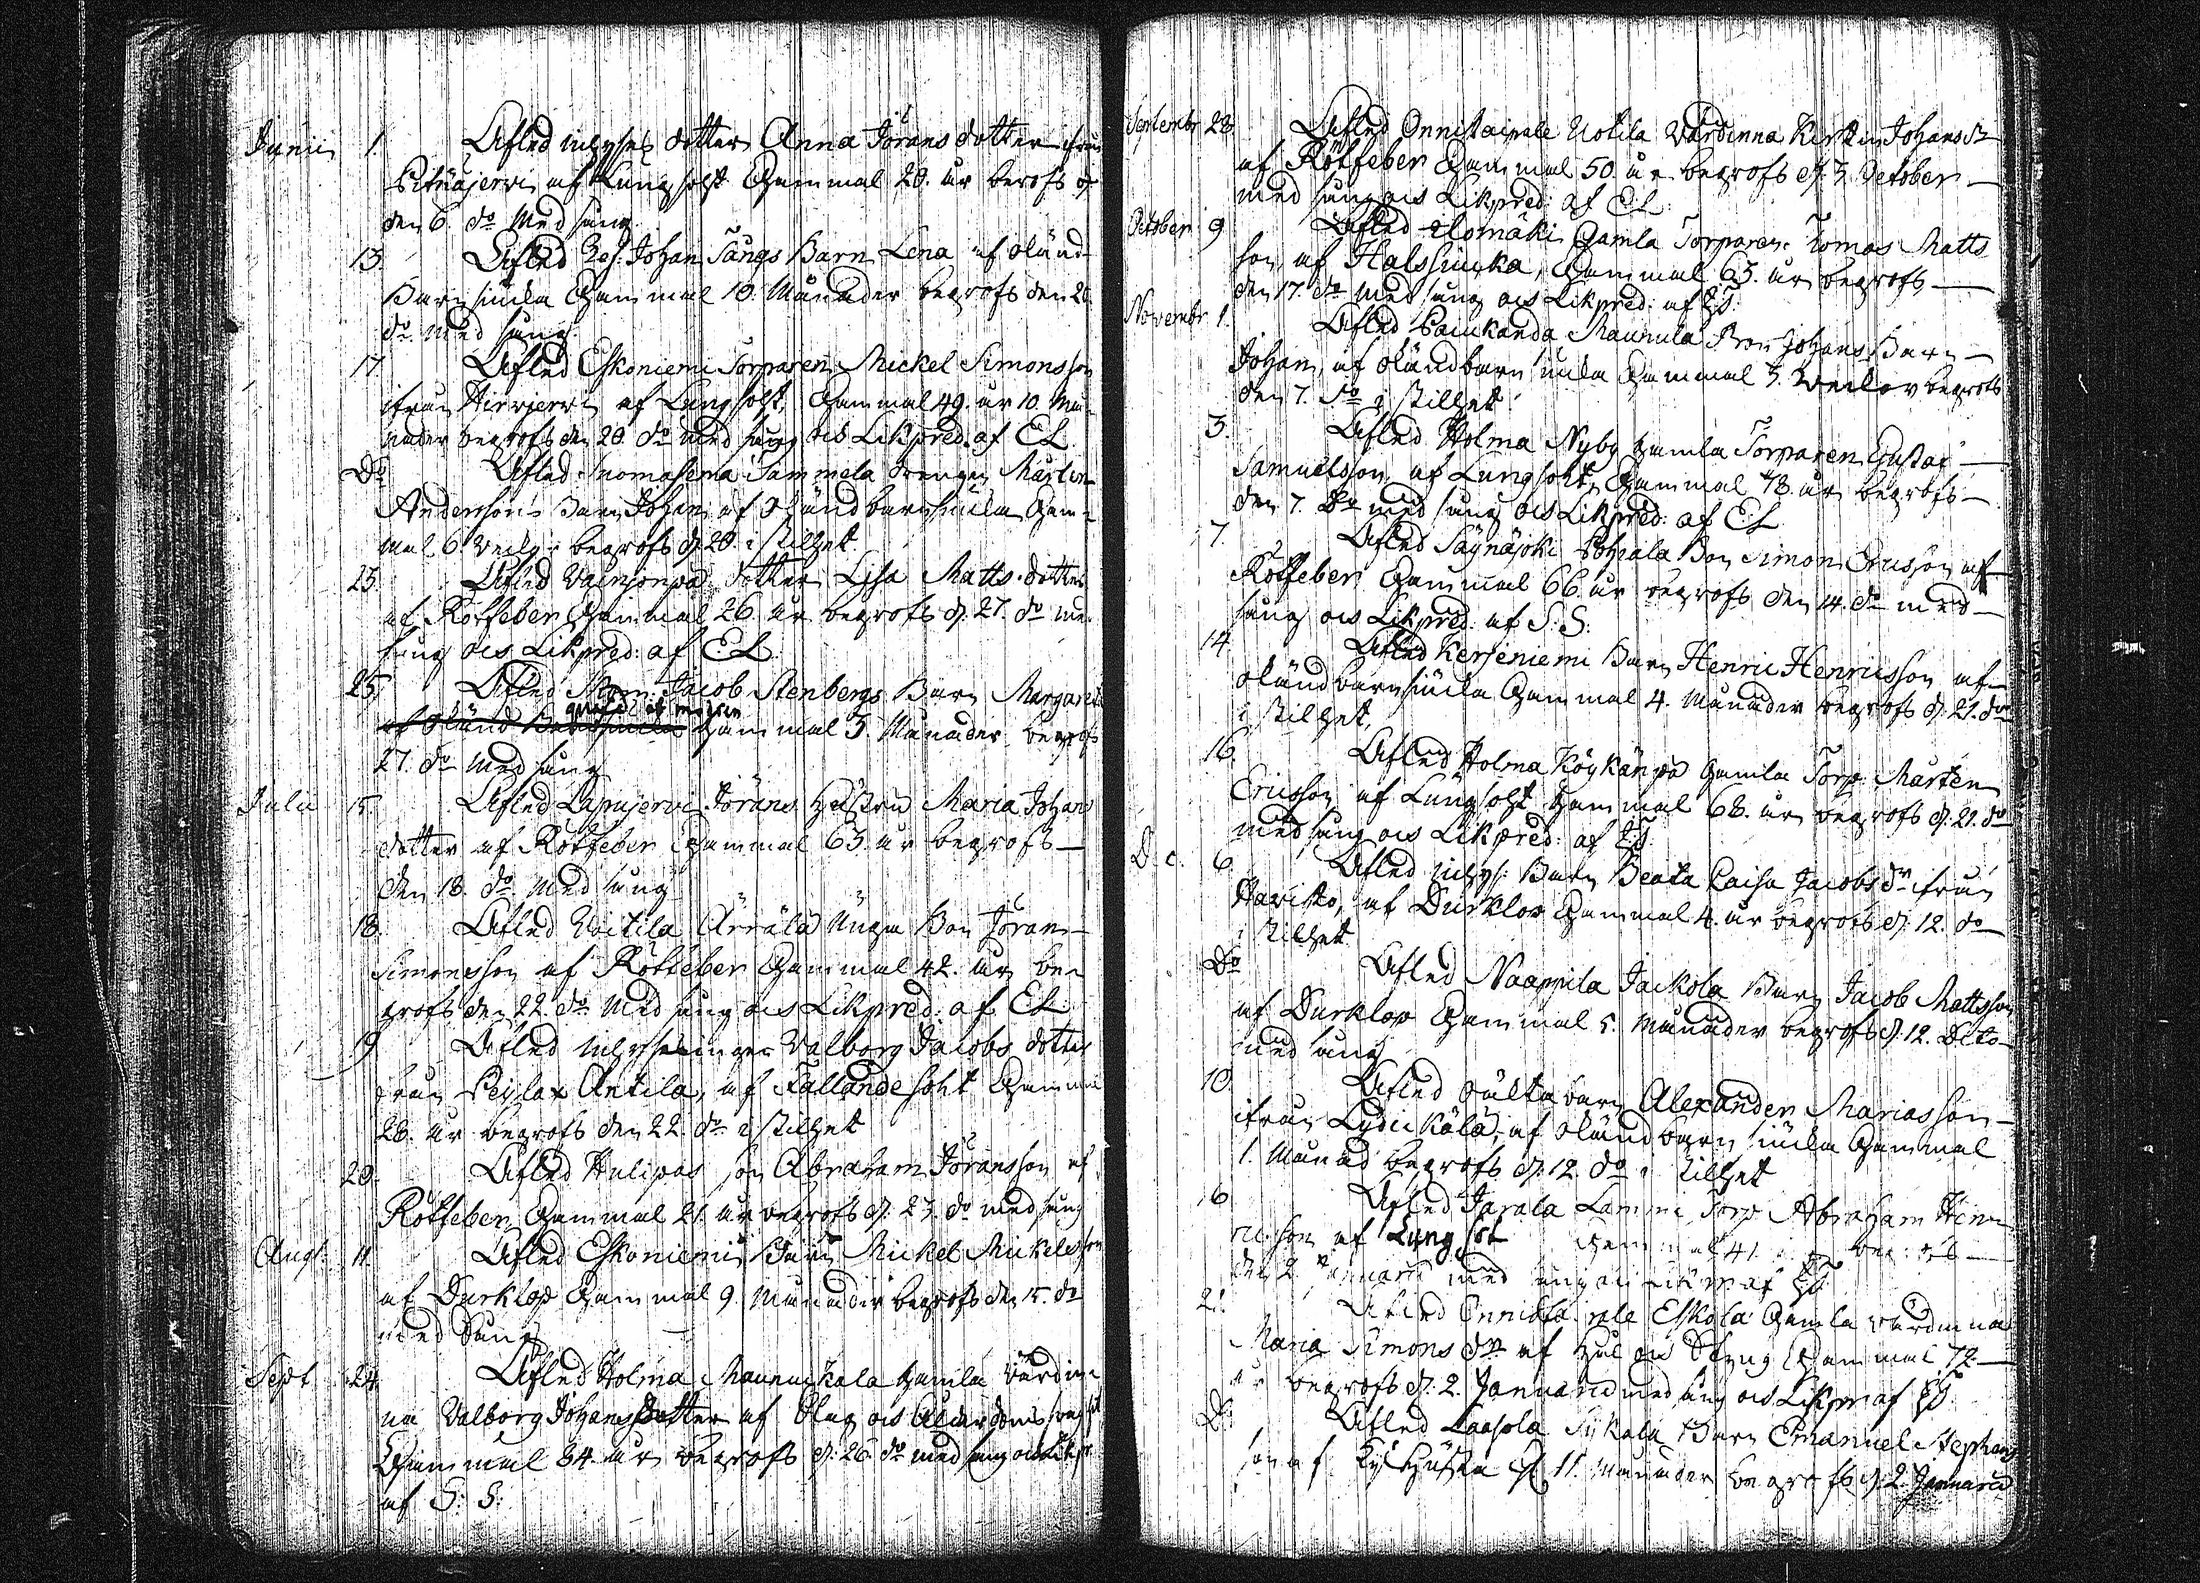 Junii 1. Afled inhyses dotter Anna Jörans dotter ifrån
Pitkäjervi af Lungsoht Gammal 20. år begrofs
den 6. do Med sång
13. Afled Johan Tångs Barn Lena af okänd
Barnsiuka Gammal 10. Månader begrofs den 20.
do med sång
17. Afled Eskoniemi Torparen Mickel Simonsson
ifrån Hirvjervi af Lungsoht, Gammal 49. år 10. Må-
nader begrofs den 20. do med sång ock Likpred. af EL
Do Afled Tammela Drengen Mårten
Andersson's Barn Johan af okänd barnsiuka Gam-
mal 6. Veckor begrofs d. 20. i stillhet
23. Afled dotter Lisa Matts dotter
af Rötfeber Gammal 26 år begrofs d. 27. do med
sång ock Likpred: af EL
25. Afled Jacob Stenbergs Barn Margareta
af okänd Barnsiuka Gammal 3. Månader begrofs
27. do med sång
Julii 15. Afled Lapujervi Jörans Hustru Maria Johans
dotter af Rötfeber Gammal 63 år begrofs
den 18. do Med sång
18. Afled Uotila Ärrälä Unga Bon Jöran
Simonsson af Rötfeber Gammal 42. år be-
grofs den 22. do Med sång ock Likpred: af EL
19 Afled Valborg Jacobs dotter
från Peylax Antila, af Fallandesoht Gammal
28. år begrofs den 22. do i stillhet
20. Afled Hulipas son Abraham Jöransson af
Rötfeber Gammal 21. år begrofs d. 23. do med sång
Augt. 11. Afled Eskoniemi Barn Mickel Mickelsson
af Durklop Gammal 9. Månader begrofs den 15. do
med Sång
Sept 24 Afled Holma Maunuksla Gamla Värdin-
na Valborg Johans dotter af ock Ålderdoms
Gammal 84. år begrofs d. 26. do med sång ock Likpr.
af S: S:
Septembr 28 Afled Onnistaipale Uotila Värdinna Kirstin Johansdr
af Rötfeber Gammal 50. år begrofs d. 3. October
med sång ock Likpred: af EL
October 9 Afled Gamla Torparen Tomas Matts
son af Halssiuka, Gammal 63. år begrofs
den 17. do Med sång ock Likpred: af
Novembr 1. Afled Paiukanda Maunula Bon Johans Barn
Johan, af okänd barnsiuka Gammal 3. Veckor begrofs
den 7. do i stillhet
3. Afled Holma Nyby Gamla Torparen Gustaf
Samuelsson af Lungsoht, Gammal 78. år begrofs
den 7. do med sång ock Likpred: af E:L
7. Afled Säynäjoki Pohiala Bon Simon Ericsson af
Rötfeber Gammal 66. år begrofs den 14. do med
sång ock Likpred: af S: S:
14. Afled Kerjeniemi Barn Henric Henricsson af
okänd barnsiuka Gammal 4. Månader begrofs d. 21. do
i stillhet
16. Afled Holma Köykänpä Gamla Torp: Mårten
Ericsson af Lungsoht Gammal 68. år begrofs d. 21. do
med sång ock Likpred: af
D. c. 6 Afled inhys: Barn Beata Caisa Jacobs dr ifrån
Haristo, af Durklop Gammal 4. år begrofs d. 12. do
i stillhet
Do Afled Naappila Jackola Barn Jacob Mattsson
af Durklop Gammal 5. Månader begrofs d. 12. Dito
med sång
10. Afled oäkta barn Alexander Mariasson
ifrån Lydickälä, af okänd barn siuka Gammal
1. Månad begrofs d. 12. do i stillhet
16 Afled Jarala Torp Abraham Hen-
ricsson af Lungsot Gammal 41. år begrofs
den 2 Januarii med sång ock af
21 Afled Onnistaipale Eskola Gamla värdinna
Maria Simons dr af ock Styng Gammal 72
år begrofs d. 2. Januarii med sång ock Likpr af
Do Afled Laasola Barn Emanuel Stephans
son af Kykhusta 11. Månader begrofs d. 2. Januarii